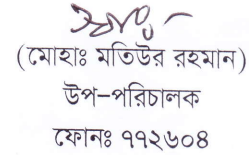 (মোহাঃ মতিউর রহমান)
উপ-পরিচালক
ফোনঃ ৭৭২৬০৪